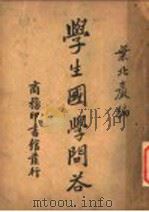 葉北巖編
學生國學問答
商務印書館發行